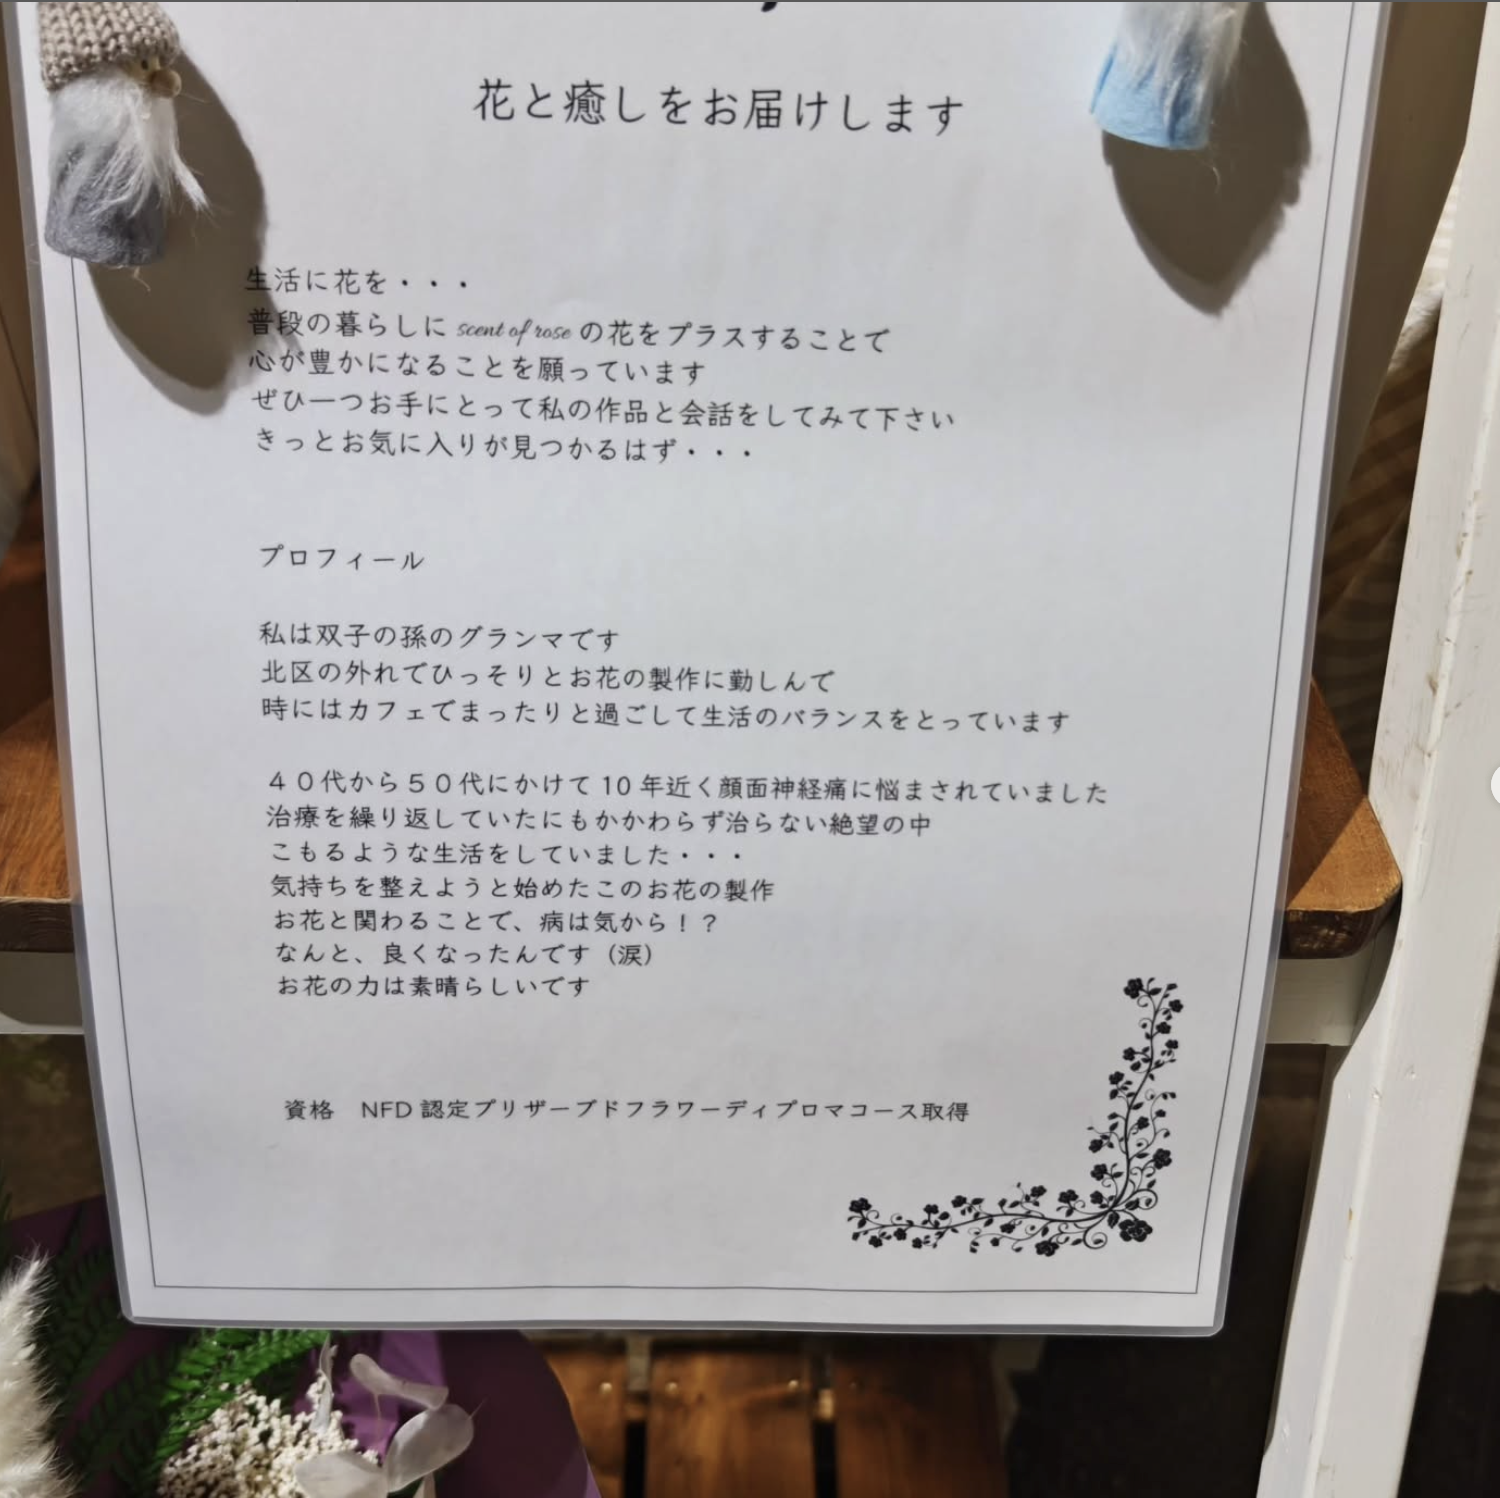 花と癒しをお届けします
生活に花を・・・
普段の暮らしに scent of rose の花をプラスすることで
心が豊かになることを願っています
ぜひ一つお手にとって私の作品と会話をしてみて下さい
きっとお気に入りが見つかるはず・・・
プロフィール
私は双子の孫のグランマです
北区の外れでひっそりとお花の製作に勤しんで
時にはカフェでまったりと過ごして生活のバランスをとっています
４０代から５０代にかけて 10 年近く顔面神経痛に悩まされていました
治療を繰り返していたにもかかわらず治らない絶望の中
こもるような生活をしていました・・・
気持ちを整えようと始めたこのお花の製作
お花と関わることで、病は気から！？
なんと、良くなったんです（涙）
お花の力は素晴らしいです
資格　NFD 認定プリザーブドフラワーディプロマコース取得